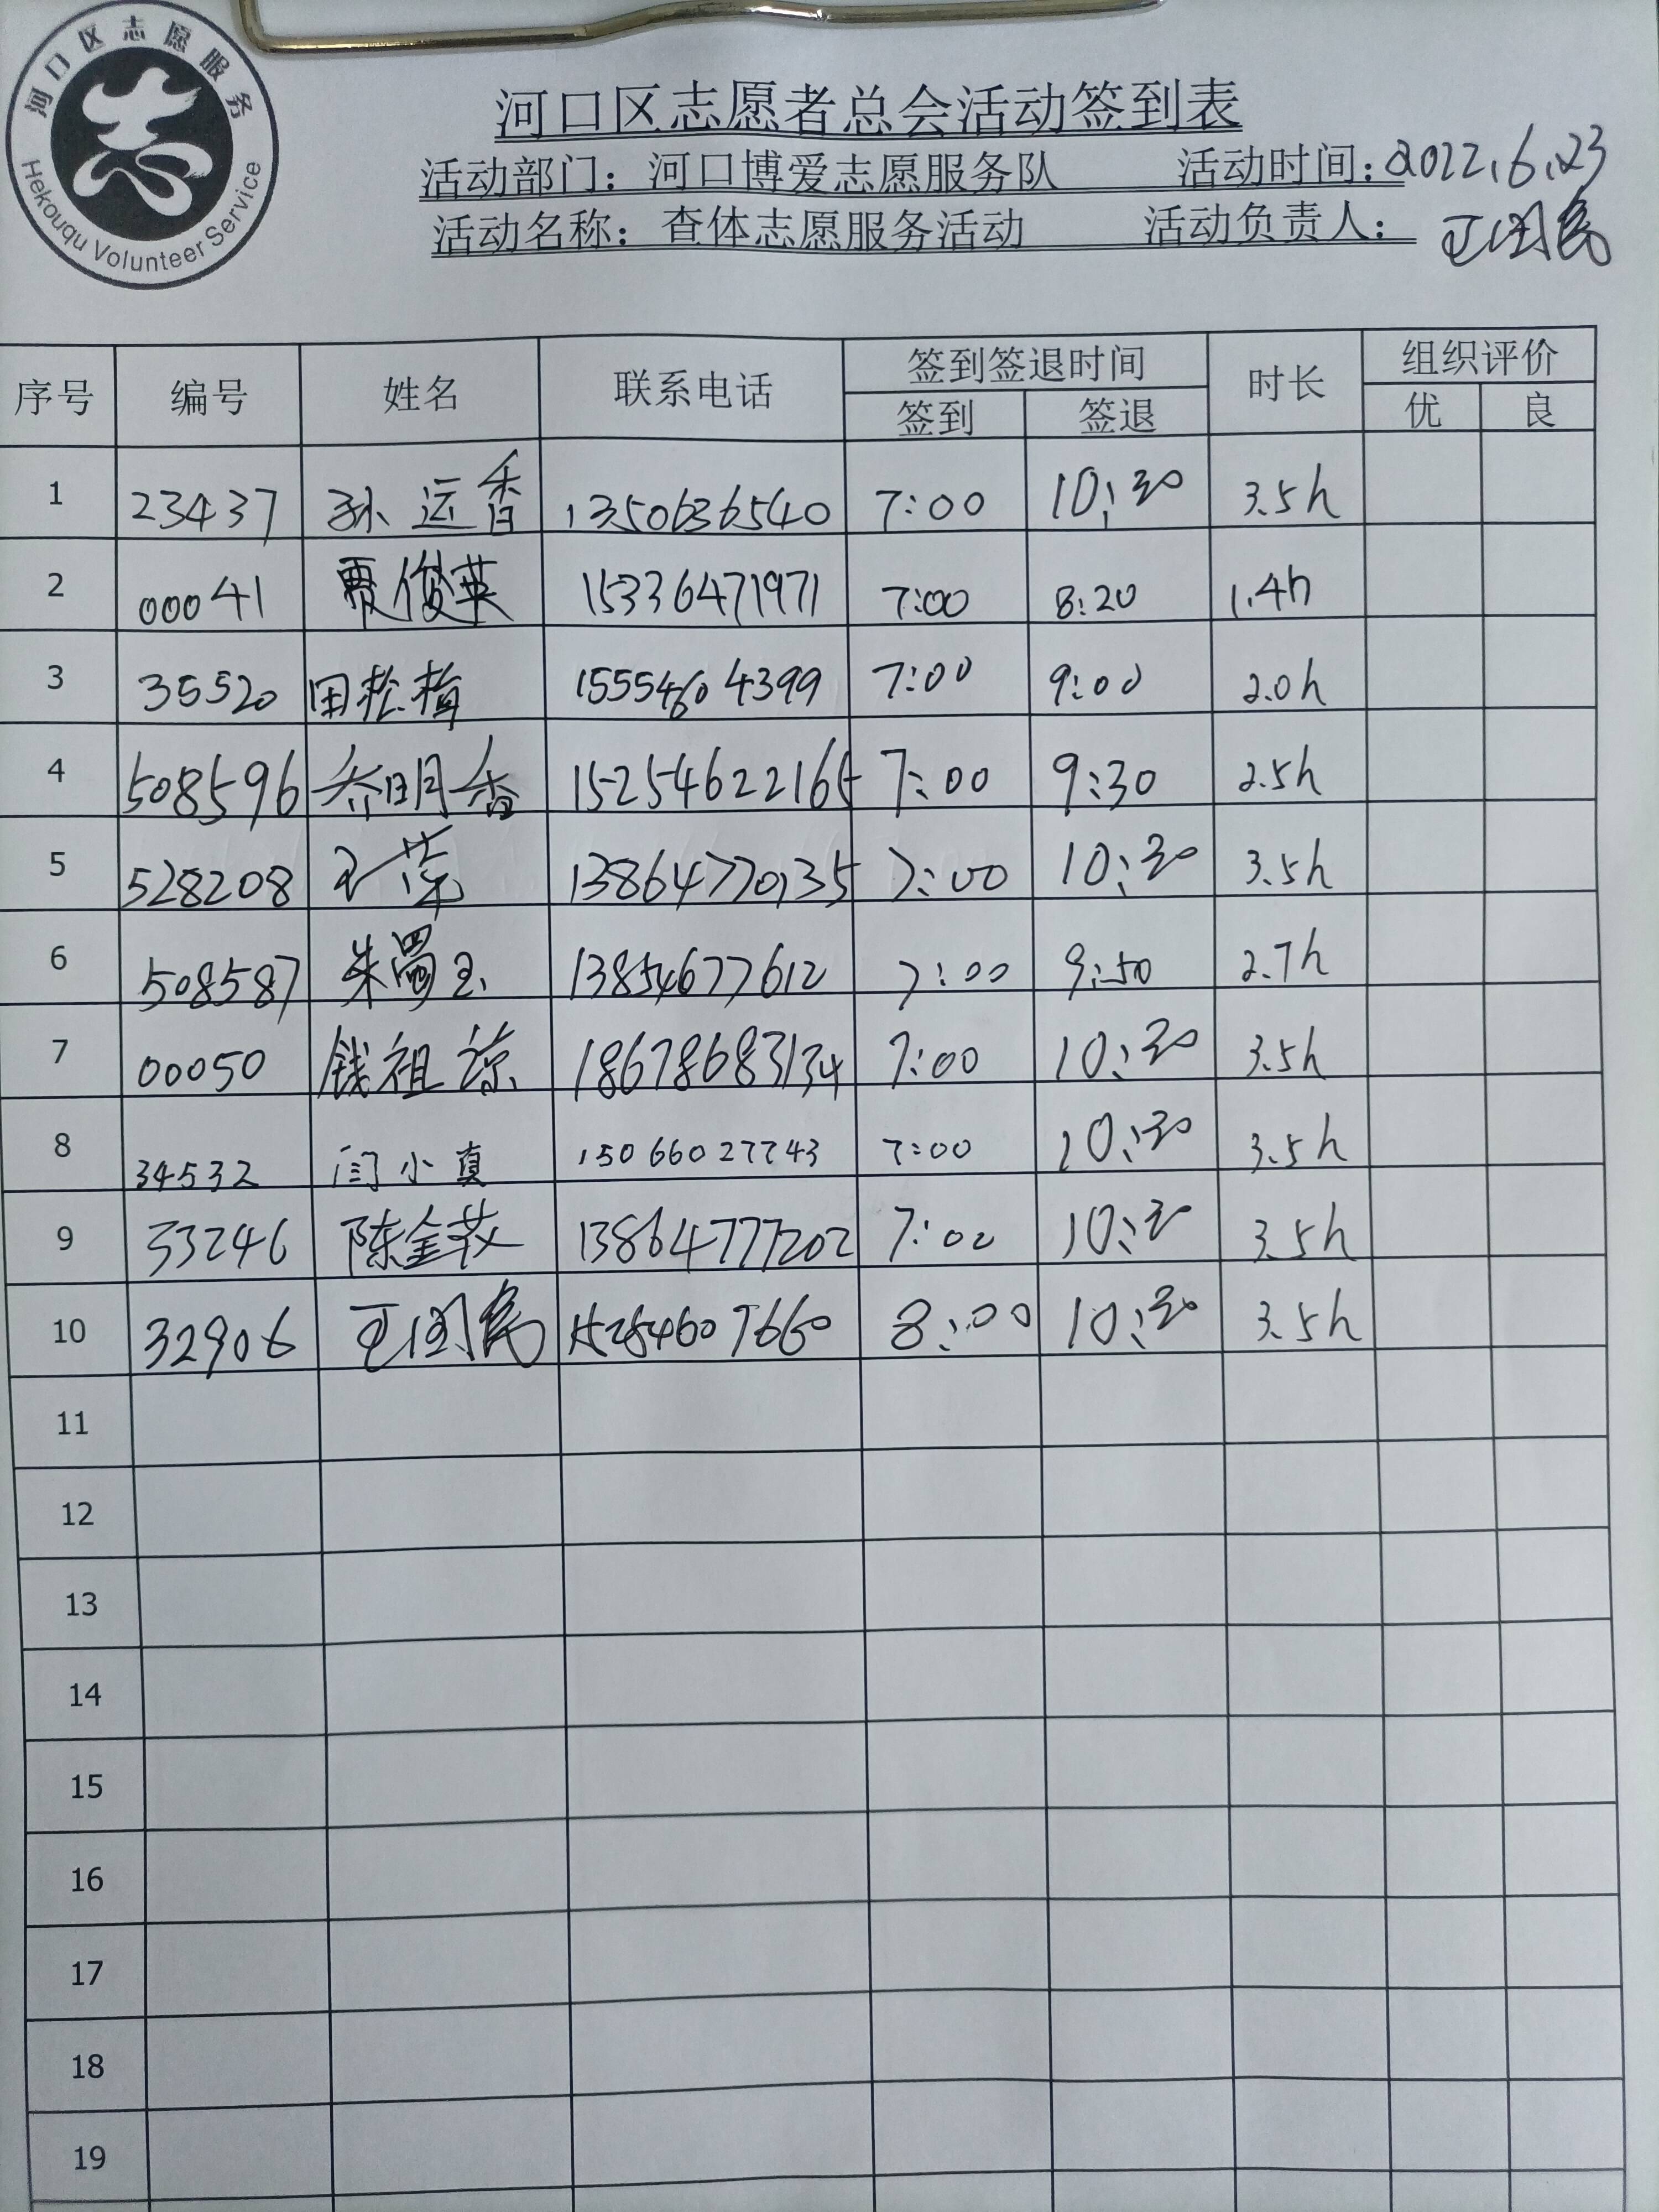 河口区志愿服务
Hekouqu Volunteer Service
河口区志愿者总会活动签到表
活动部门：河口博爱志愿服务队 活动时间：2022.6.23
活动名称：查体志愿服务活动 活动负责人：王国民
序号 编号 姓名 联系电话 签到签退时间 时长 组织评价
签到 签退 优 良
1 23437 孙运香 1350636540 7:00 10:30 3.5h
2 00041 贾俊英 15336471971 7:00 8:20 1.4h
3 35520 田松梅 15554604399 7:00 9:00 2.0h
4 508596 乔明香 15254622165 7:00 9:30 2.5h
5 528208 王荣 13864770135 7:00 10:30 3.5h
6 508587 朱蜀玉 13854677612 7:00 9:50 2.7h
7 00050 钱祖琼 18678683134 7:00 10:30 3.5h
8 34532 闫小真 15066027743 7:00 10:30 3.5h
9 33246 陈金苓 13864777202 7:00 10:30 3.5h
10 32906 王国民 15254607660 8:00 10:30 3.5h
11
12
13
14
15
16
17
18
19